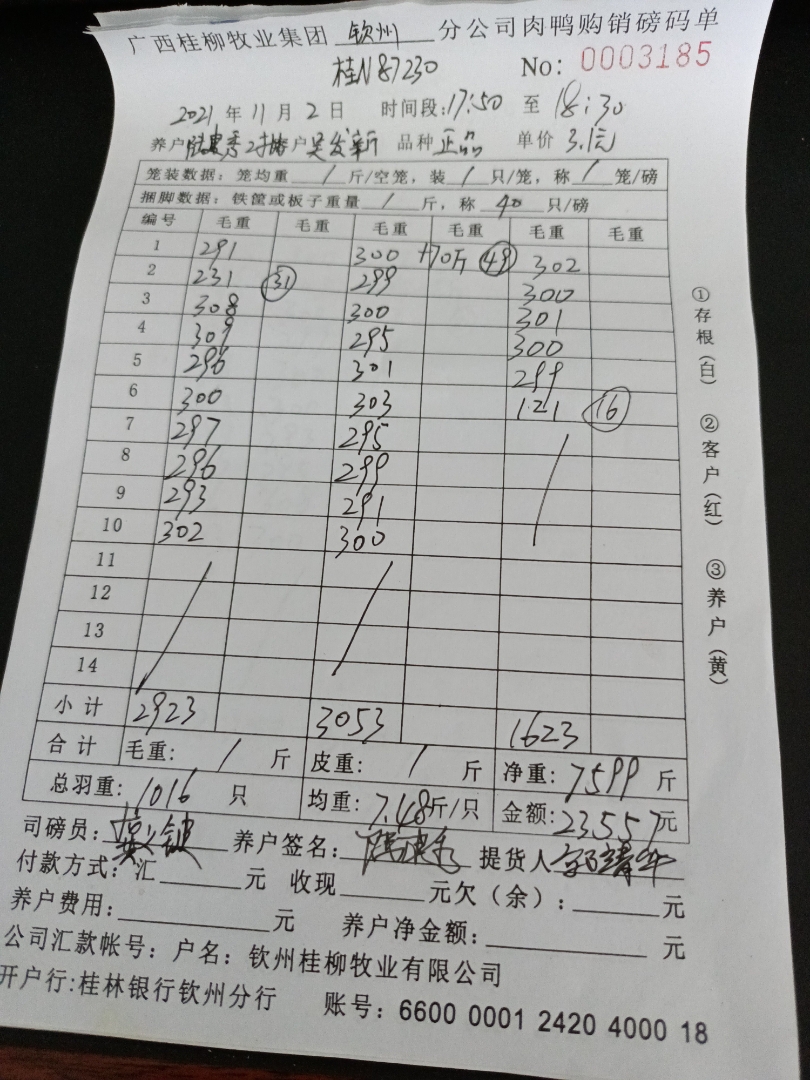 广西桂柳牧业集团 钦州 分公司肉鸭购销磅码单
桂N87230 No: 0003185
2021 年 11 月 2 日 时间段: 17:50 至 18:30
养户 秀 户 吴发新 品种 正品 单价 3.1元
笼装数据: 笼均重 / 斤/空笼, 装 / 只/笼, 称 / 笼/磅
捆脚数据: 铁筐或板子重量 / 斤, 称 40 只/磅
编号 毛重 毛重 毛重 毛重 毛重 毛重
1 291 300 +70斤 49 302
2 231 31 299 300
3 308 300 301
4 309 295 300
5 296 301 299
6 300 303 121 16
7 297 295
8 296 299
9 293 291
10 302 300
11
12
13
14
小计 2923 3053 1623
合计 毛重: / 斤 皮重: / 斤 净重: 7599 斤
总羽重: 1016 只 均重: 7.48 斤/只 金额: 23557 元
司磅员: 养户签名: 提货人
付款方式: 汇 元 收现 元欠（余）: 元
养户费用: 元 养户净金额: 元
公司汇款帐号: 户名: 钦州桂柳牧业有限公司
开户行:桂林银行钦州分行 账号: 6600 0001 2420 4000 18
①存根（白） ②客户（红） ③养户（黄）